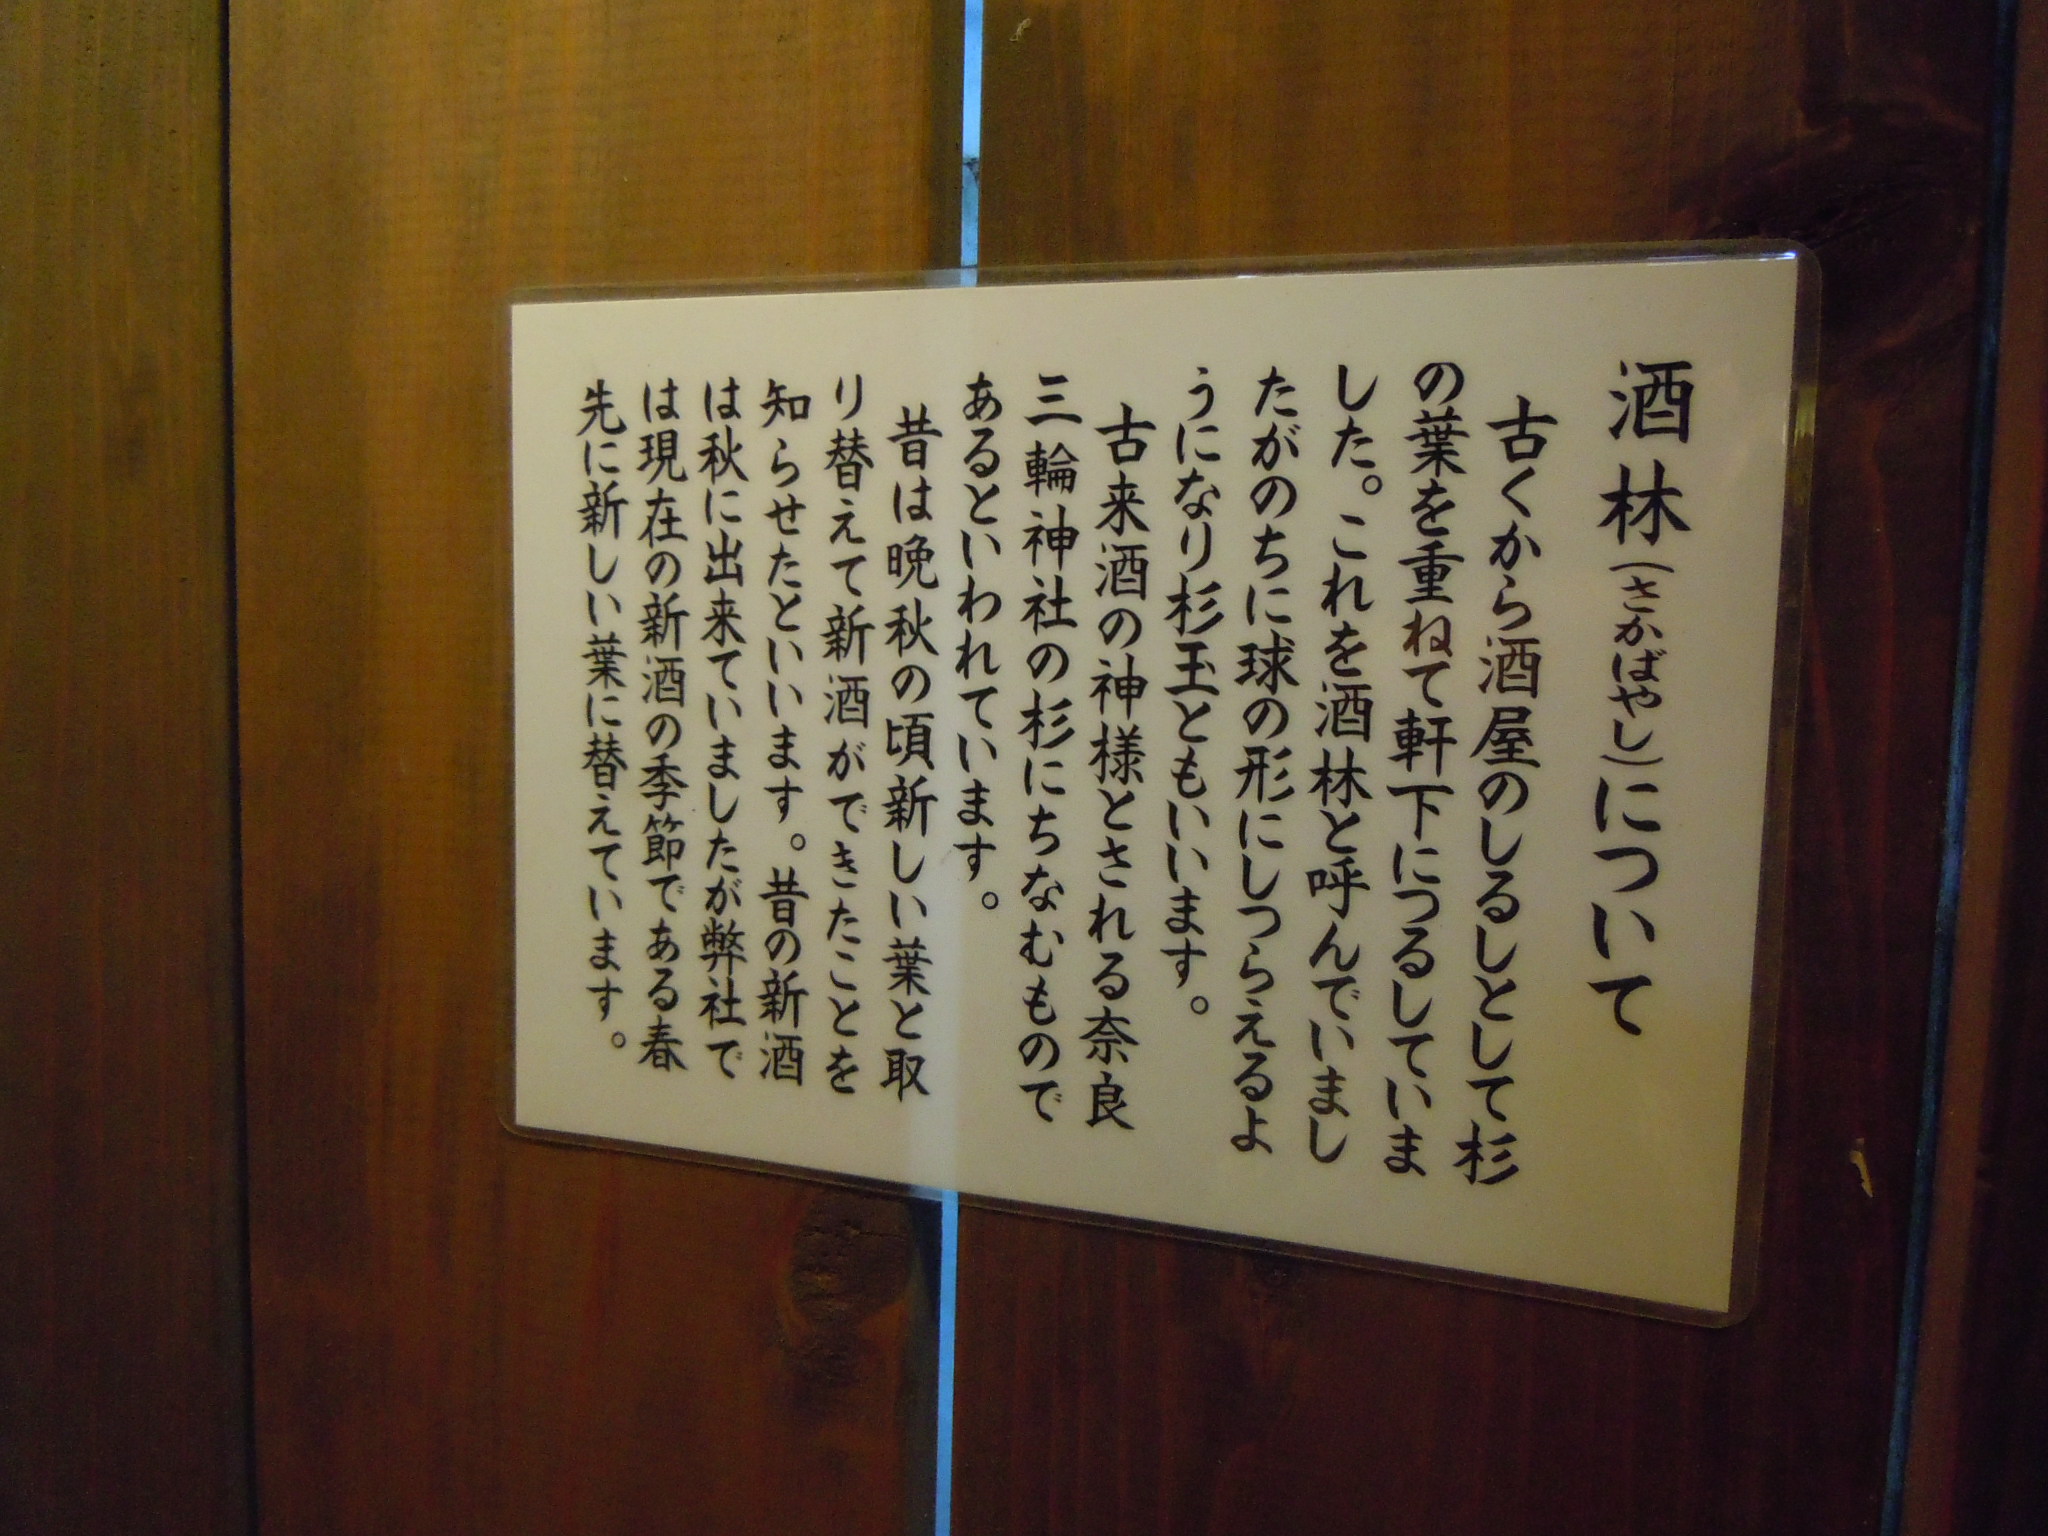 酒林(さかばやし)について
古くから酒屋のしるしとして杉
の葉を重ねて軒下につるしていま
した。これを酒林と呼んでいまし
たがのちに球の形にしつらえるよ
うになり杉玉ともいいます。
古来酒の神様とされる奈良
三輪神社の杉にちなむもので
あるといわれています。
昔は晩秋の頃新しい葉と取
り替えて新酒ができたことを
知らせたといいます。昔の新酒
は秋に出来ていましたが弊社で
は現在の新酒の季節である春
先に新しい葉に替えています。